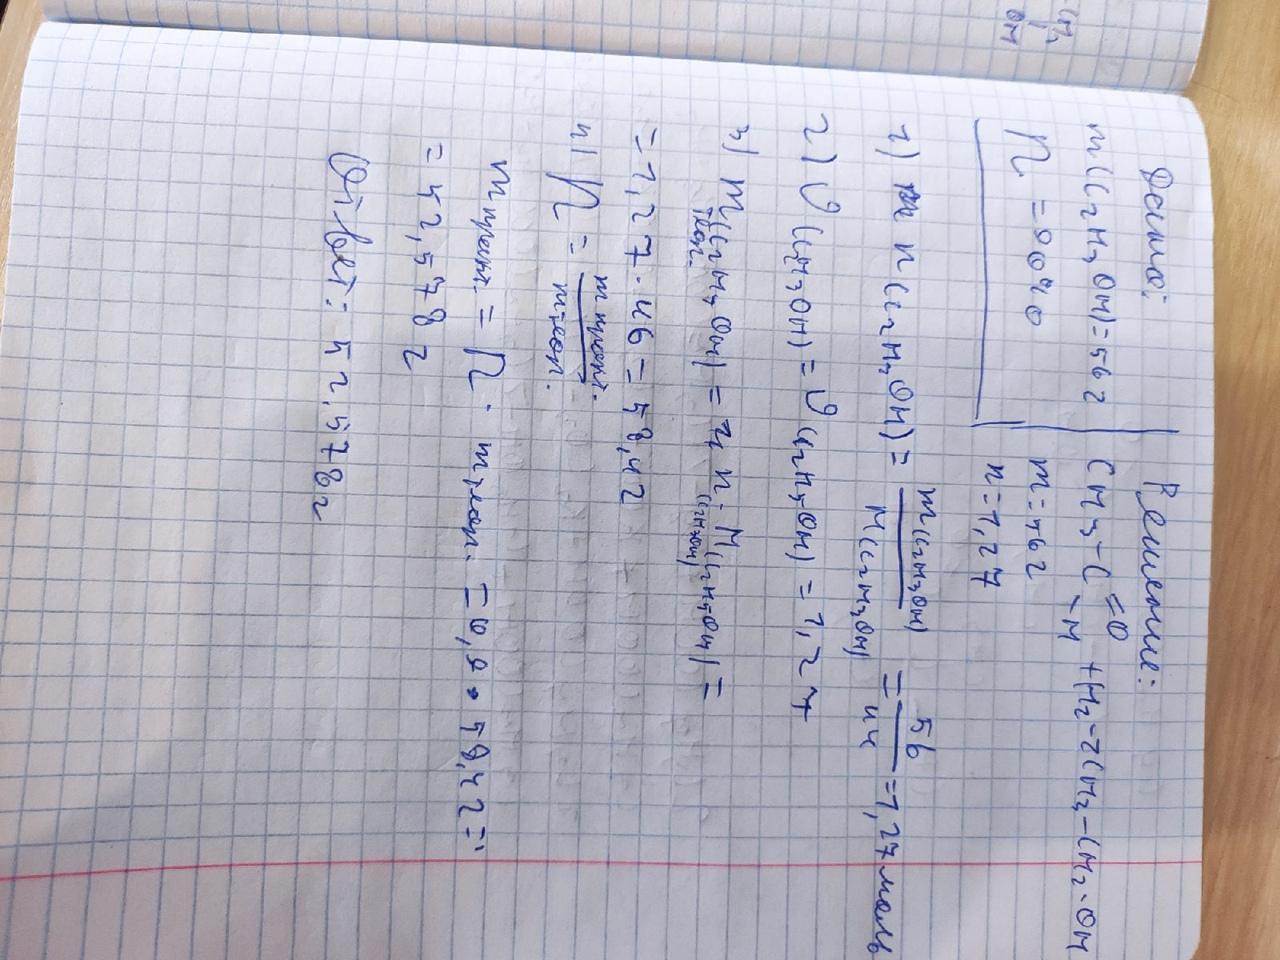 Дано:
m(C₂H₃OH)=56г
η =90%
Решение:
CH₃-C=O-H +H₂-2CH₃-CH₂-OH
m=56г
n=1,27
1) n(C₂H₃OH)= m(C₂H₃OH)/M(C₂H₃OH) = 56/44 =1,27моль
2) ν(C₂H₃OH)= ν(C₂H₅OH) =1,27
3) m теор. (C₂H₅OH) = n(C₂H₅OH) · M(C₂H₅OH) =
=1,27·46=58,42
4) η = m практ./m теор.
m практ. = η · m теор. =0,9·58,42=
=52,578г
Ответ: 52,578г
CH₂
OH